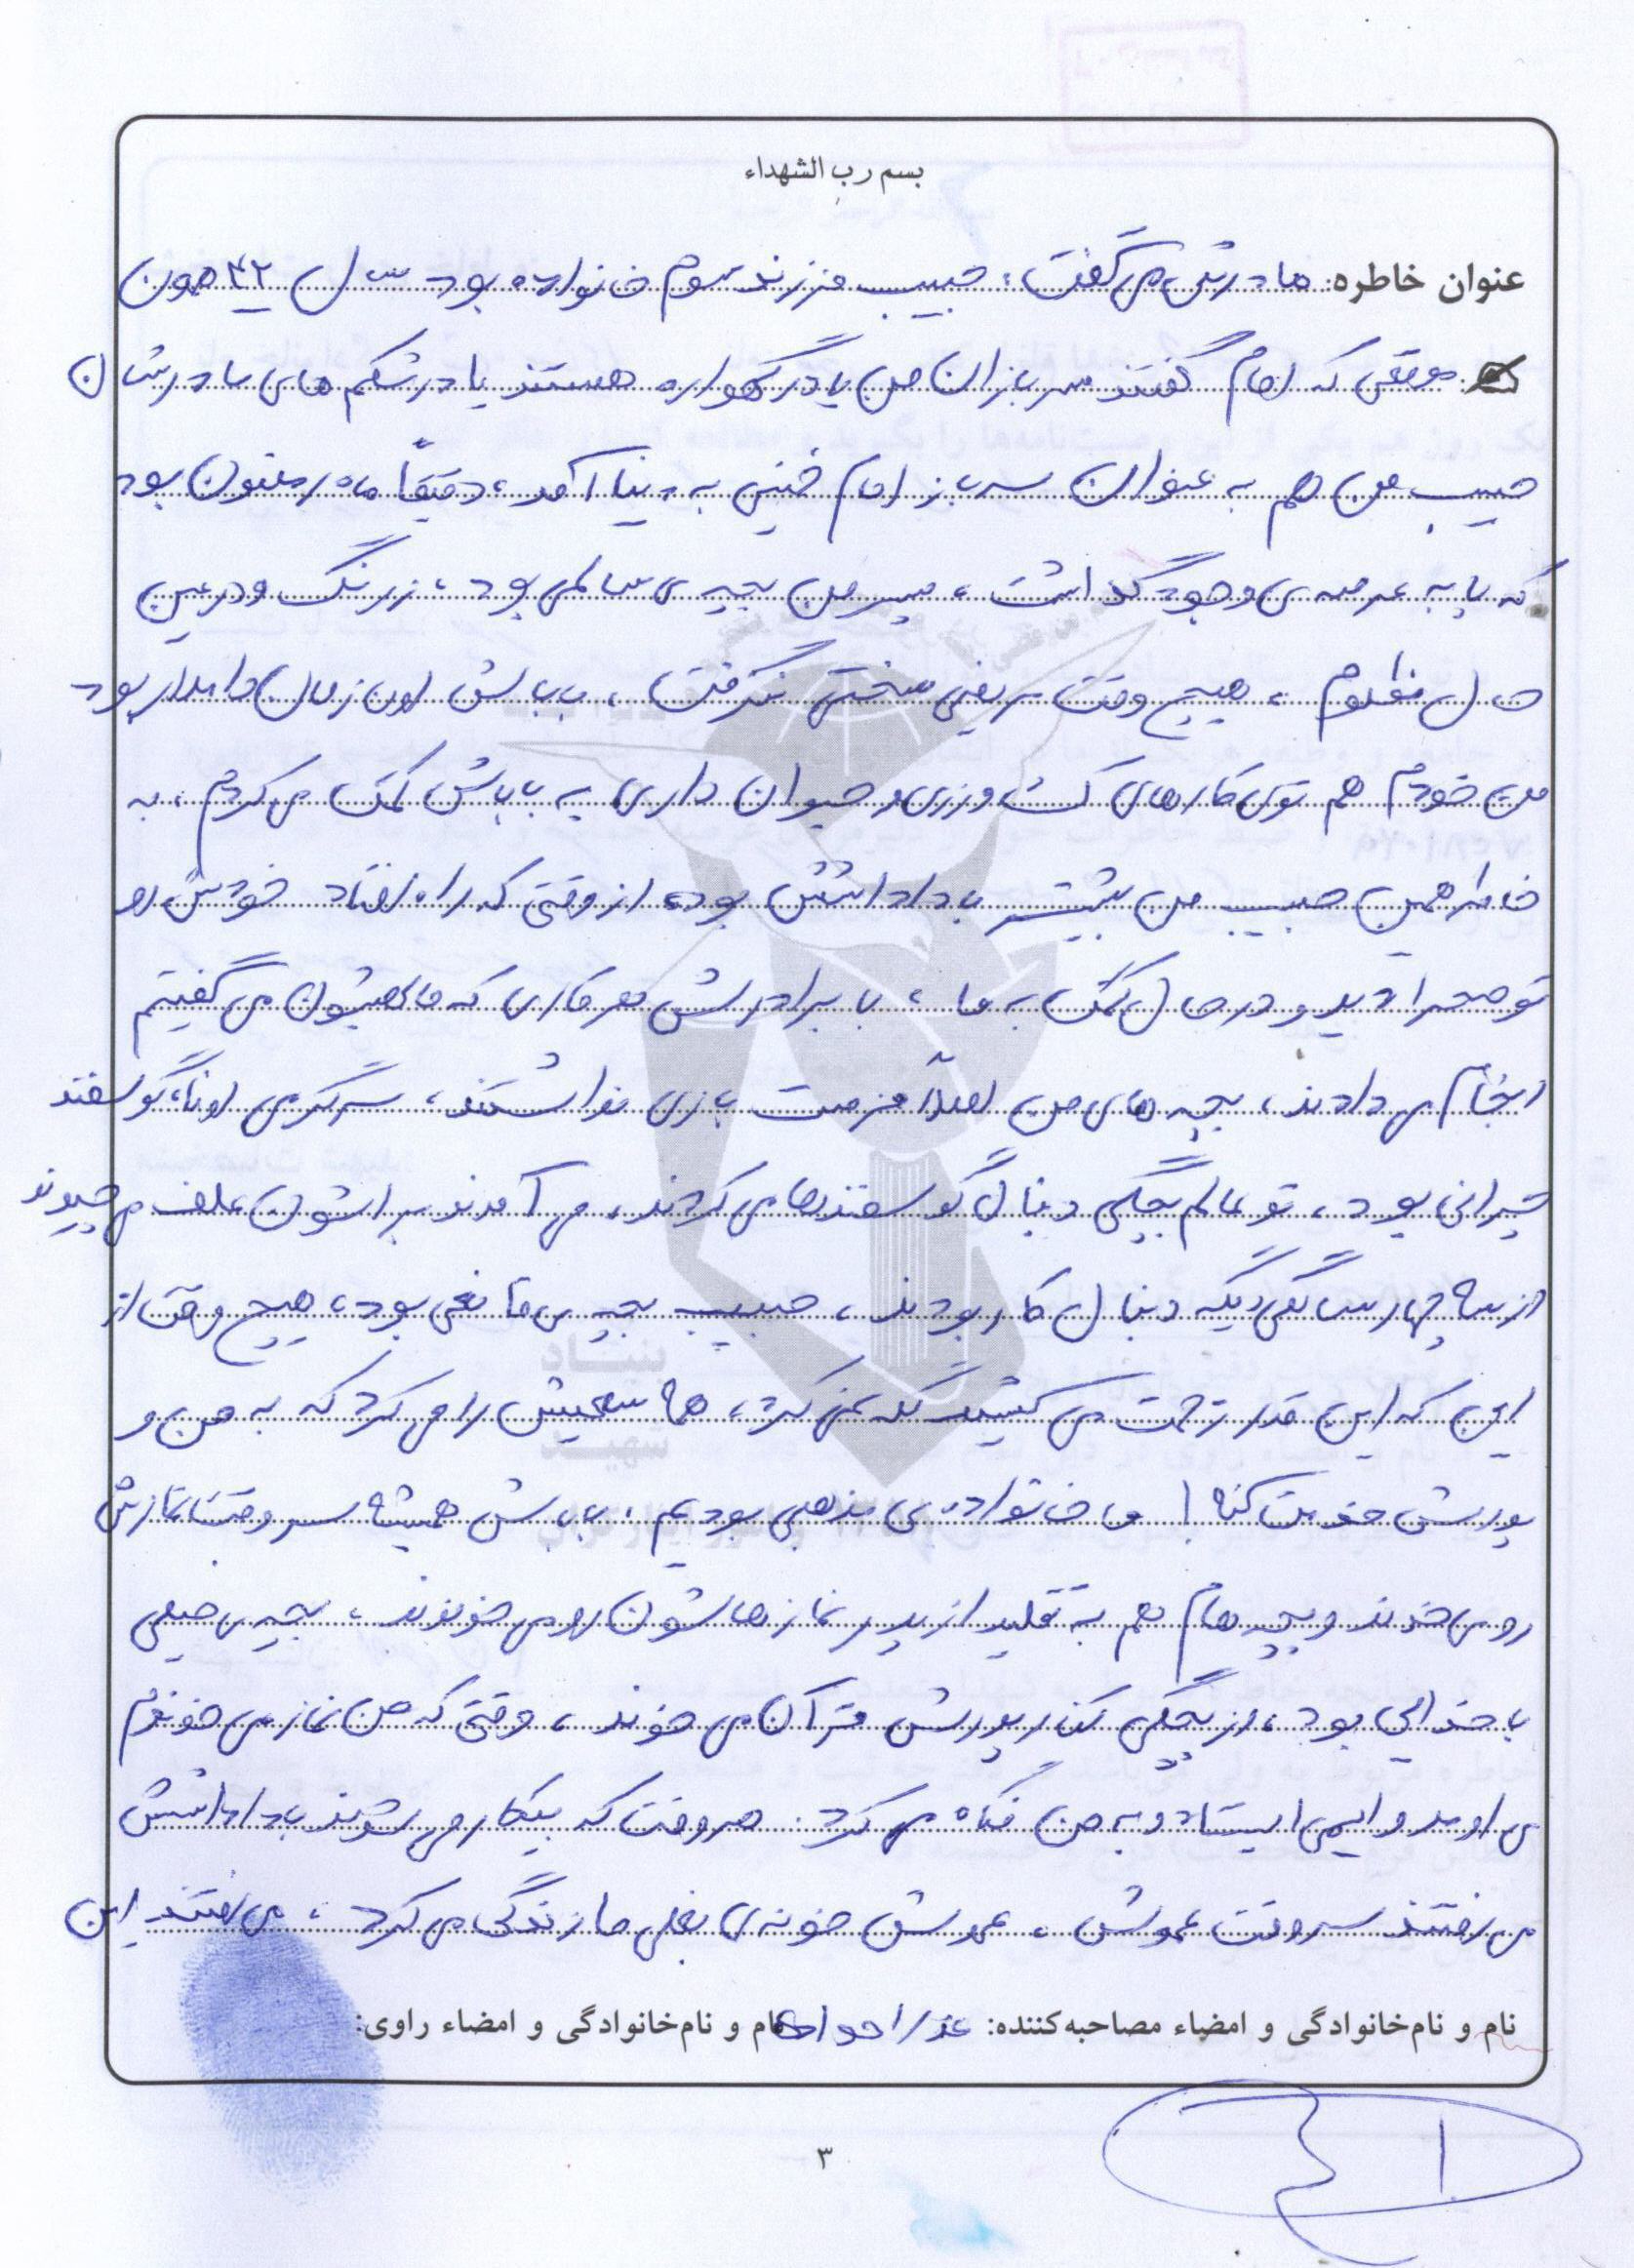 بسم رب الشهداء
عنوان خاطره: مادرش می گفت: حبیب فرزند سوم خانواده بود سال ۴۲ همون
موقعی که امام گفتند سربازان من یا در گهواره هستند یا در شکم های مادرشان
حبیب من هم به عنوان سرباز امام خمینی به دنیا آمد، دقیقاً ماه رمضون بود
که پا به عرصه ی وجود گذاشت، پسر من بچه ی سالمی بود، زرنگ و در عین
حال مظلوم، هیچ وقت مریضی سختی نگرفت، باباش اون زمان دامدار بود
من خودم هم توی کارهای کشاورزی و حیوان داری به باباش کمک می کردم، به
خاطر همین حبیب من بیشتر با داداشش بود، از وقتی که راه افتاد خودش رو
تو صحرا دید و در حال کمک به ما، با برادرش هر کاری که ما بهشون می گفتیم
انجام می دادند، بچه های من اصلاً فرصت بازی نداشتند، سرگرمی اونا گوسفند
چرانی بود، تو عالم بچگی دنبال گوسفندها می کردند، می آمدند براشون علف می چیدند
از سه چهار سالگی دیگه دنبال کار بودند، حبیب بچه ی قانعی بود، هیچ وقت از
این که این قدر زحمت می کشید گله نمی کرد، همه سعیش را می کرد که به من و
پدرش خدمت کنه! ما خانواده ی مذهبی بودیم، باباش همیشه سر وقت نمازش
رو می خوند و بچه هام هم به تقلید از پدر نمازهاشون رو می خوندند، بچه ی خیلی
با خدایی بود، از بچگی کنار پدرش قرآن می خوند، وقتی که من نماز می خوندم
می اومد و می ایستاد و به من نگاه می کرد. هر وقت که بیکار می شدند با داداشش
می رفتند سر وقت عموش، عموش خونه ی بغلی ما زندگی می کرد، می رفتند این
نام و نام‌خانوادگی و امضاء مصاحبه‌کننده: عذرا نام و نام‌خانوادگی و امضاء راوی:
۳